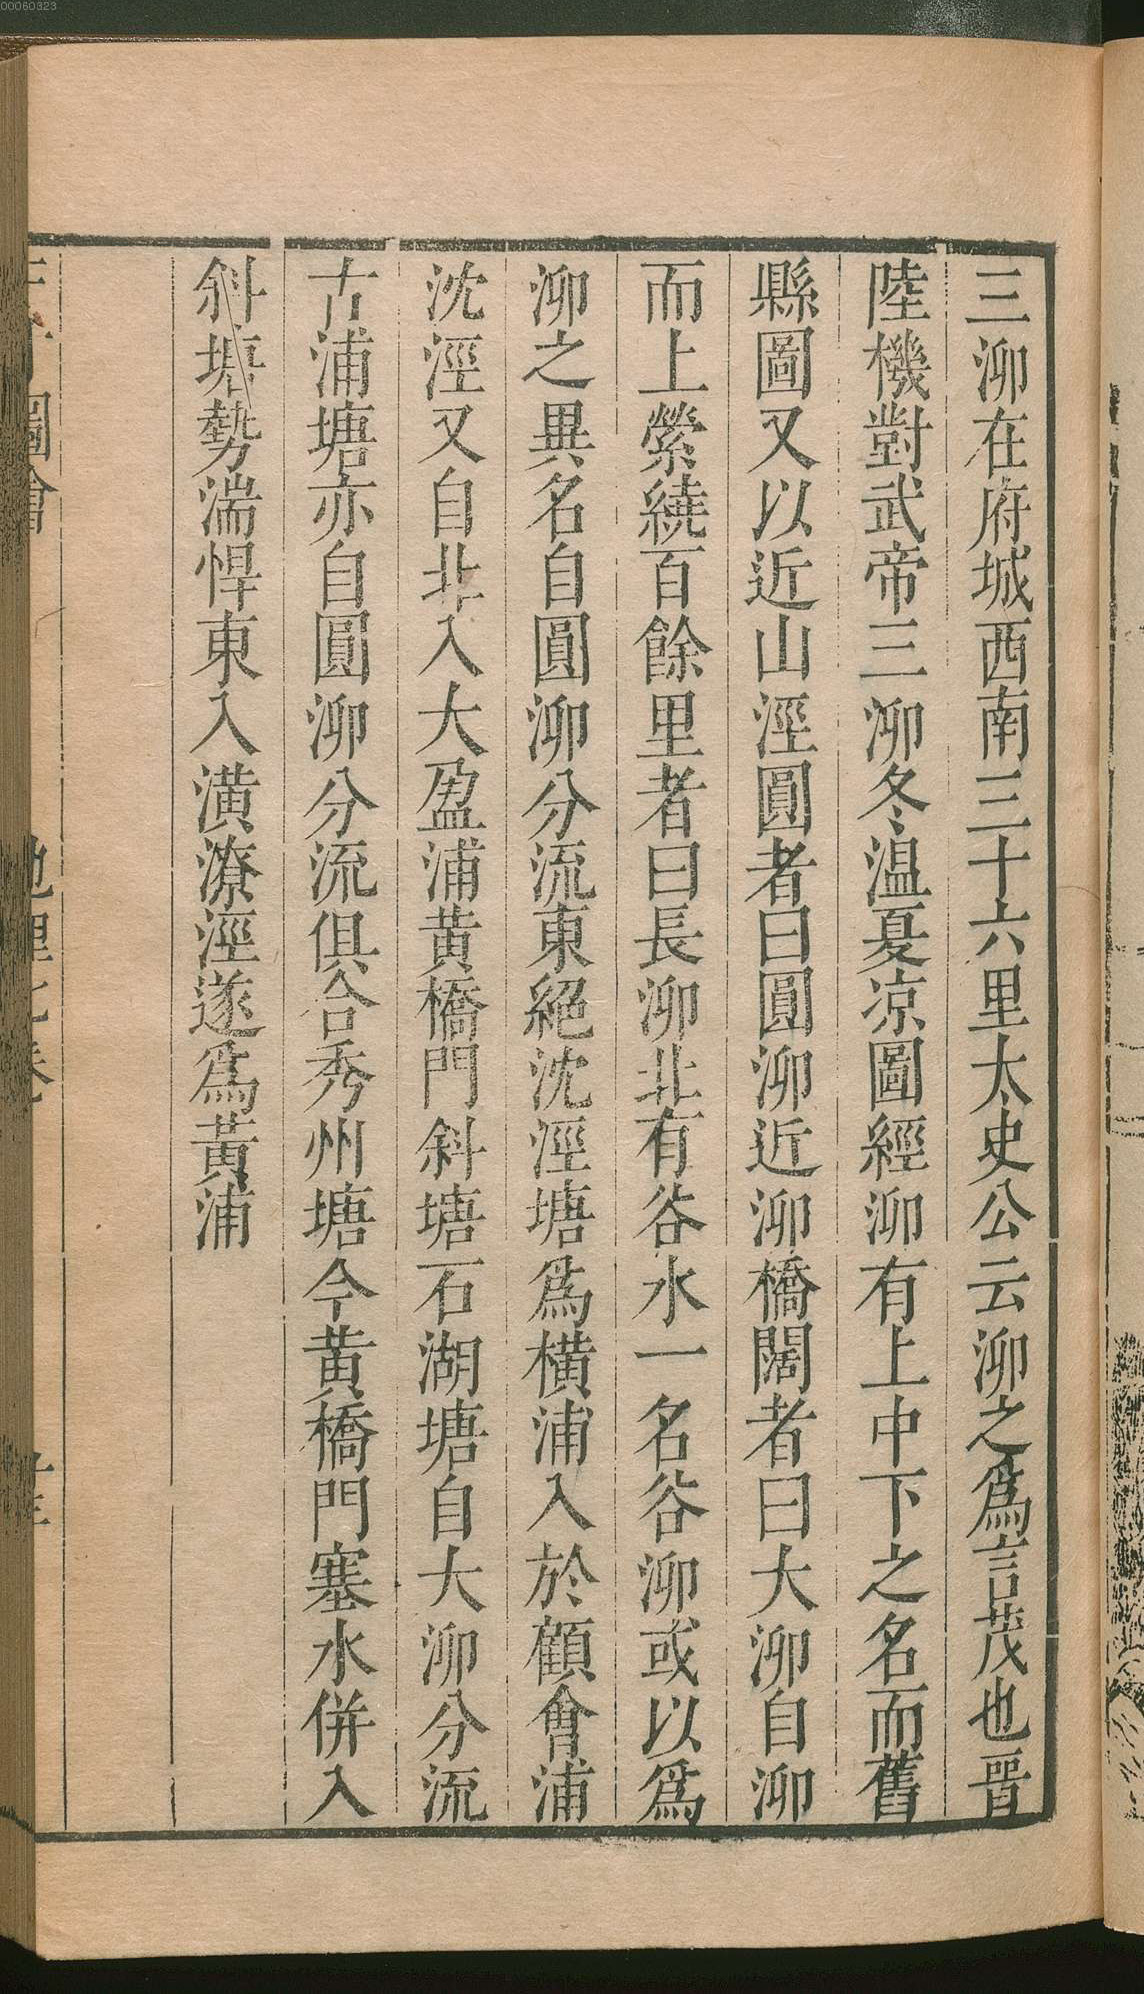 00060323
三泖在府城西南三十六里太史公云泖之爲言茂也晉
陸機對武帝三泖冬溫夏凉圖經泖有上中下之名而舊
縣圖又以近山涇圓者曰圓泖近泖橋闊者曰大泖自泖
而上縈繞百餘里者曰長泖北有谷水一名谷泖或以爲
泖之異名自圓泖分流東絕沈涇塘爲橫浦入於顧會浦
沈涇又自北入大盈浦黄橋門斜塘石湖塘自大泖分流
古浦塘亦自圓泖分流俱合秀州塘今黄橋門塞水併入
斜塘勢湍悍東入潢潦涇遂爲黃浦
圖會 地理七卷